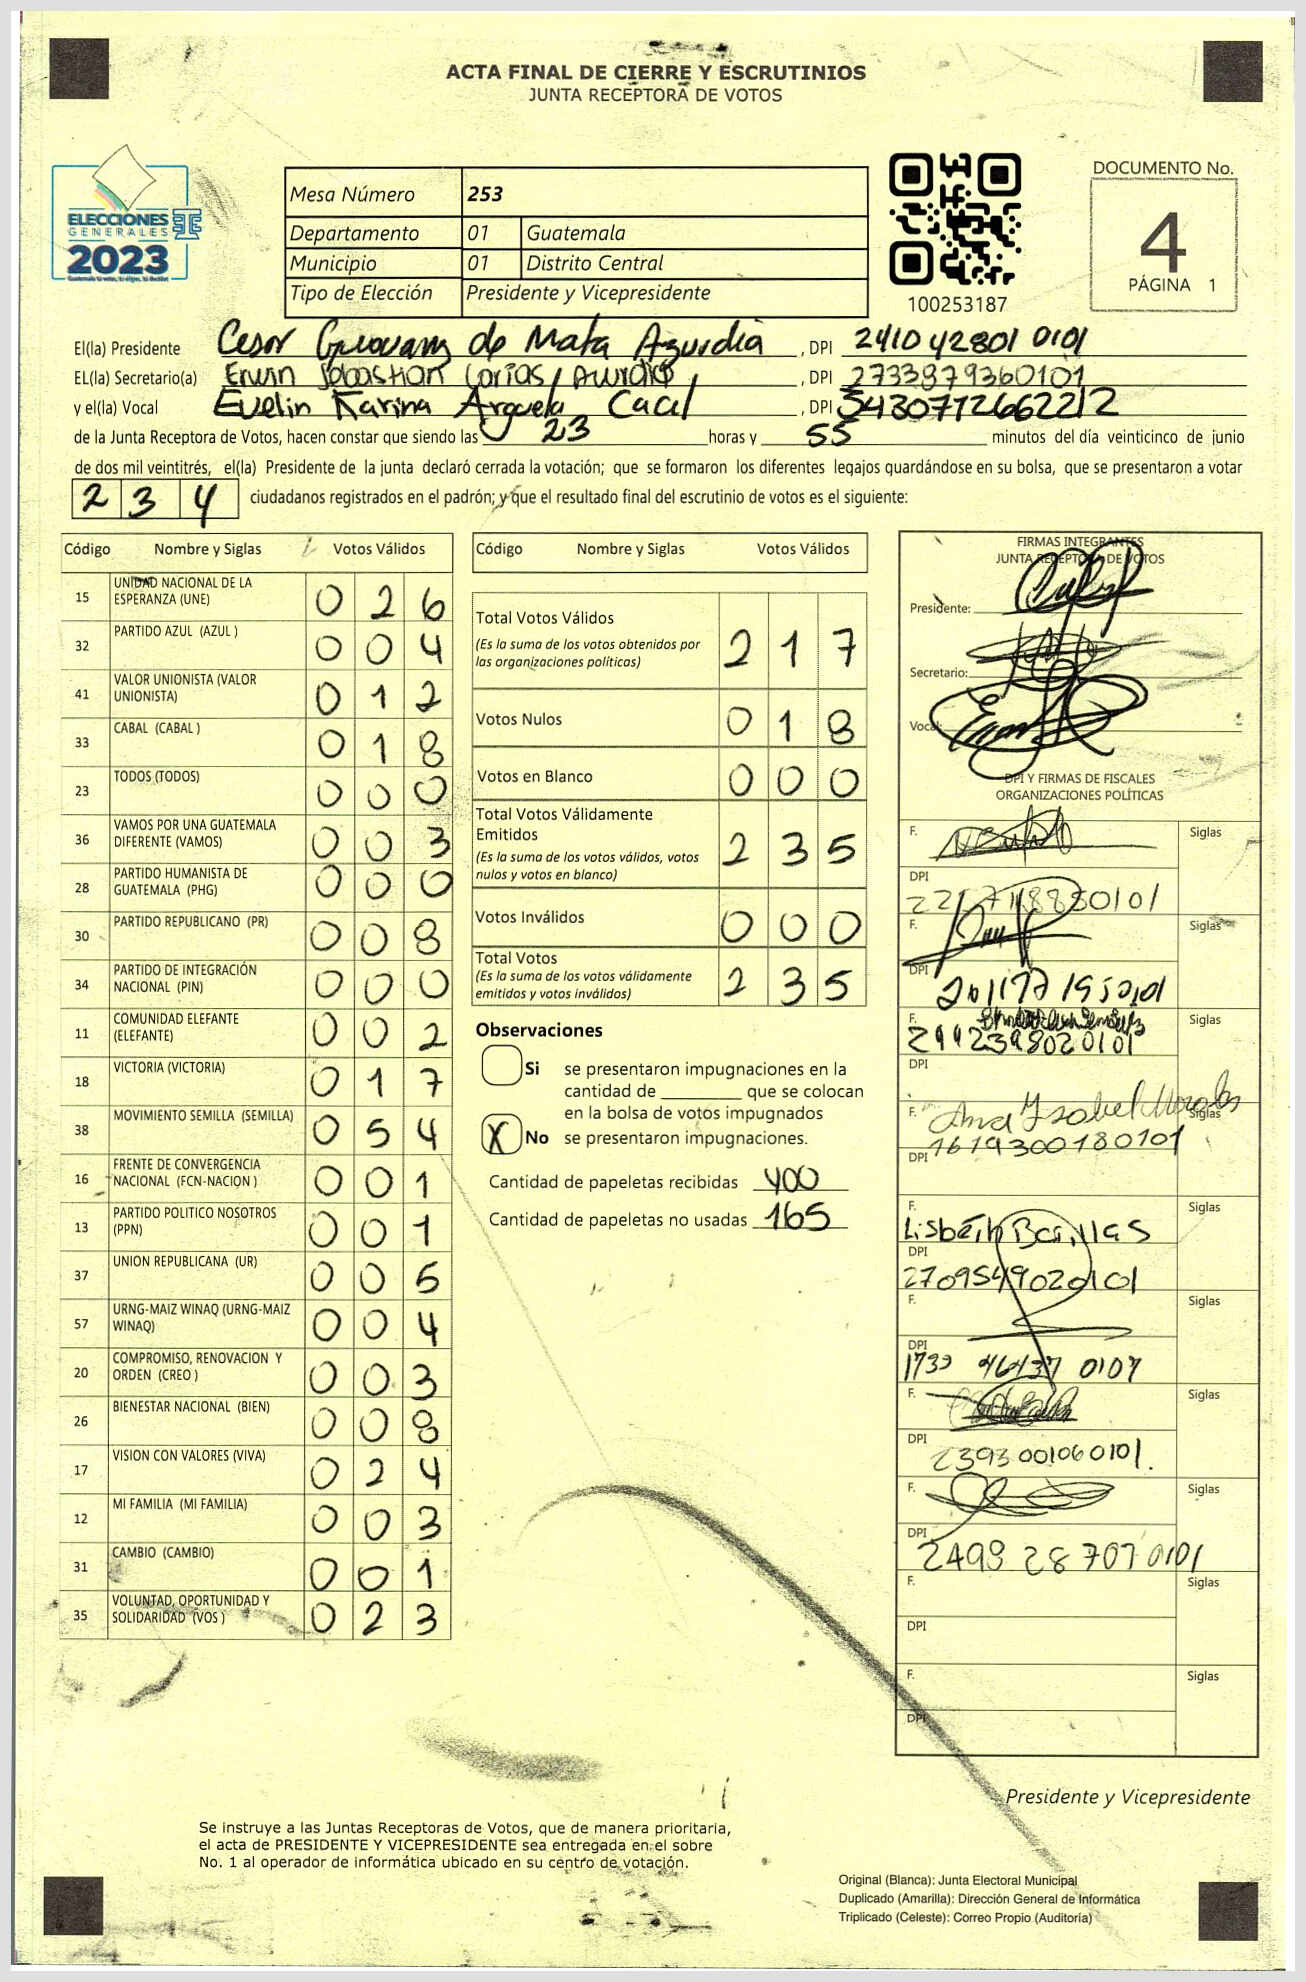 ACTA FINAL DE CIERRE Y ESCRUTINIOS
JUNTA RECEPTORA DE VOTOS
ELECCIONES
GENERALES
2023
Mesa Número 253
Departamento 01 Guatemala
Municipio 01 Distrito Central
Tipo de Elección Presidente y Vicepresidente
100253187
DOCUMENTO No.
4
PÁGINA 1
El(la) Presidente Cesar de Mata Azurdia , DPI 2410 42801 0101
EL(la) Secretario(a) Erwin Sebastian , DPI 2733879360101
y el(la) Vocal Evelin Karina Argueta Cacal , DPI 3430712662212
de la Junta Receptora de Votos, hacen constar que siendo las 23 horas y 55 minutos del día veinticinco de junio
de dos mil veintitrés, el(la) Presidente de la junta declaró cerrada la votación; que se formaron los diferentes legajos guardándose en su bolsa, que se presentaron a votar
234 ciudadanos registrados en el padrón; y que el resultado final del escrutinio de votos es el siguiente:
Código Nombre y Siglas Votos Válidos
15 UNIDAD NACIONAL DE LA ESPERANZA (UNE) 026
32 PARTIDO AZUL (AZUL ) 004
41 VALOR UNIONISTA (VALOR UNIONISTA) 012
33 CABAL (CABAL ) 018
23 TODOS (TODOS) 000
36 VAMOS POR UNA GUATEMALA DIFERENTE (VAMOS) 003
28 PARTIDO HUMANISTA DE GUATEMALA (PHG) 000
30 PARTIDO REPUBLICANO (PR) 008
34 PARTIDO DE INTEGRACIÓN NACIONAL (PIN) 000
11 COMUNIDAD ELEFANTE (ELEFANTE) 002
18 VICTORIA (VICTORIA) 017
38 MOVIMIENTO SEMILLA (SEMILLA) 054
16 FRENTE DE CONVERGENCIA NACIONAL (FCN-NACION ) 001
13 PARTIDO POLITICO NOSOTROS (PPN) 001
37 UNION REPUBLICANA (UR) 005
57 URNG-MAIZ WINAQ (URNG-MAIZ WINAQ) 004
20 COMPROMISO, RENOVACION Y ORDEN (CREO ) 003
26 BIENESTAR NACIONAL (BIEN) 008
17 VISION CON VALORES (VIVA) 024
12 MI FAMILIA (MI FAMILIA) 003
31 CAMBIO (CAMBIO) 001
35 VOLUNTAD, OPORTUNIDAD Y SOLIDARIDAD (VOS ) 023
Código Nombre y Siglas Votos Válidos
Total Votos Válidos 217
(Es la suma de los votos obtenidos por
las organizaciones políticas)
Votos Nulos 018
Votos en Blanco 000
Total Votos Válidamente
Emitidos 235
(Es la suma de los votos válidos, votos
nulos y votos en blanco)
Votos Inválidos 000
Total Votos 235
(Es la suma de los votos válidamente
emitidos y votos inválidos)
Observaciones
Si se presentaron impugnaciones en la
cantidad de ________ que se colocan
en la bolsa de votos impugnados
X No se presentaron impugnaciones.
Cantidad de papeletas recibidas 400
Cantidad de papeletas no usadas 165
FIRMAS INTEGRANTES
JUNTA RECEPTORA DE VOTOS
Presidente:
Secretario:
Vocal:
DPI Y FIRMAS DE FISCALES
ORGANIZACIONES POLÍTICAS
F. Siglas
DPI
F. Siglas
DPI
F. Siglas
2992398020101
DPI
F. Ana Ysabel Morales Siglas
DPI 1619300180101
F. Siglas
Lisbeth Barillas
DPI
2709549020101
F. Siglas
DPI
1733 46437 0107
F. Siglas
DPI
2393001060101.
F. Siglas
DPI
2493 28707 0101
F. Siglas
DPI
F. Siglas
DPI
Presidente y Vicepresidente
Se instruye a las Juntas Receptoras de Votos, que de manera prioritaria,
el acta de PRESIDENTE Y VICEPRESIDENTE sea entregada en el sobre
No. 1 al operador de informática ubicado en su centro de votación.
Original (Blanca): Junta Electoral Municipal
Duplicado (Amarilla): Dirección General de Informática
Triplicado (Celeste): Correo Propio (Auditoría)